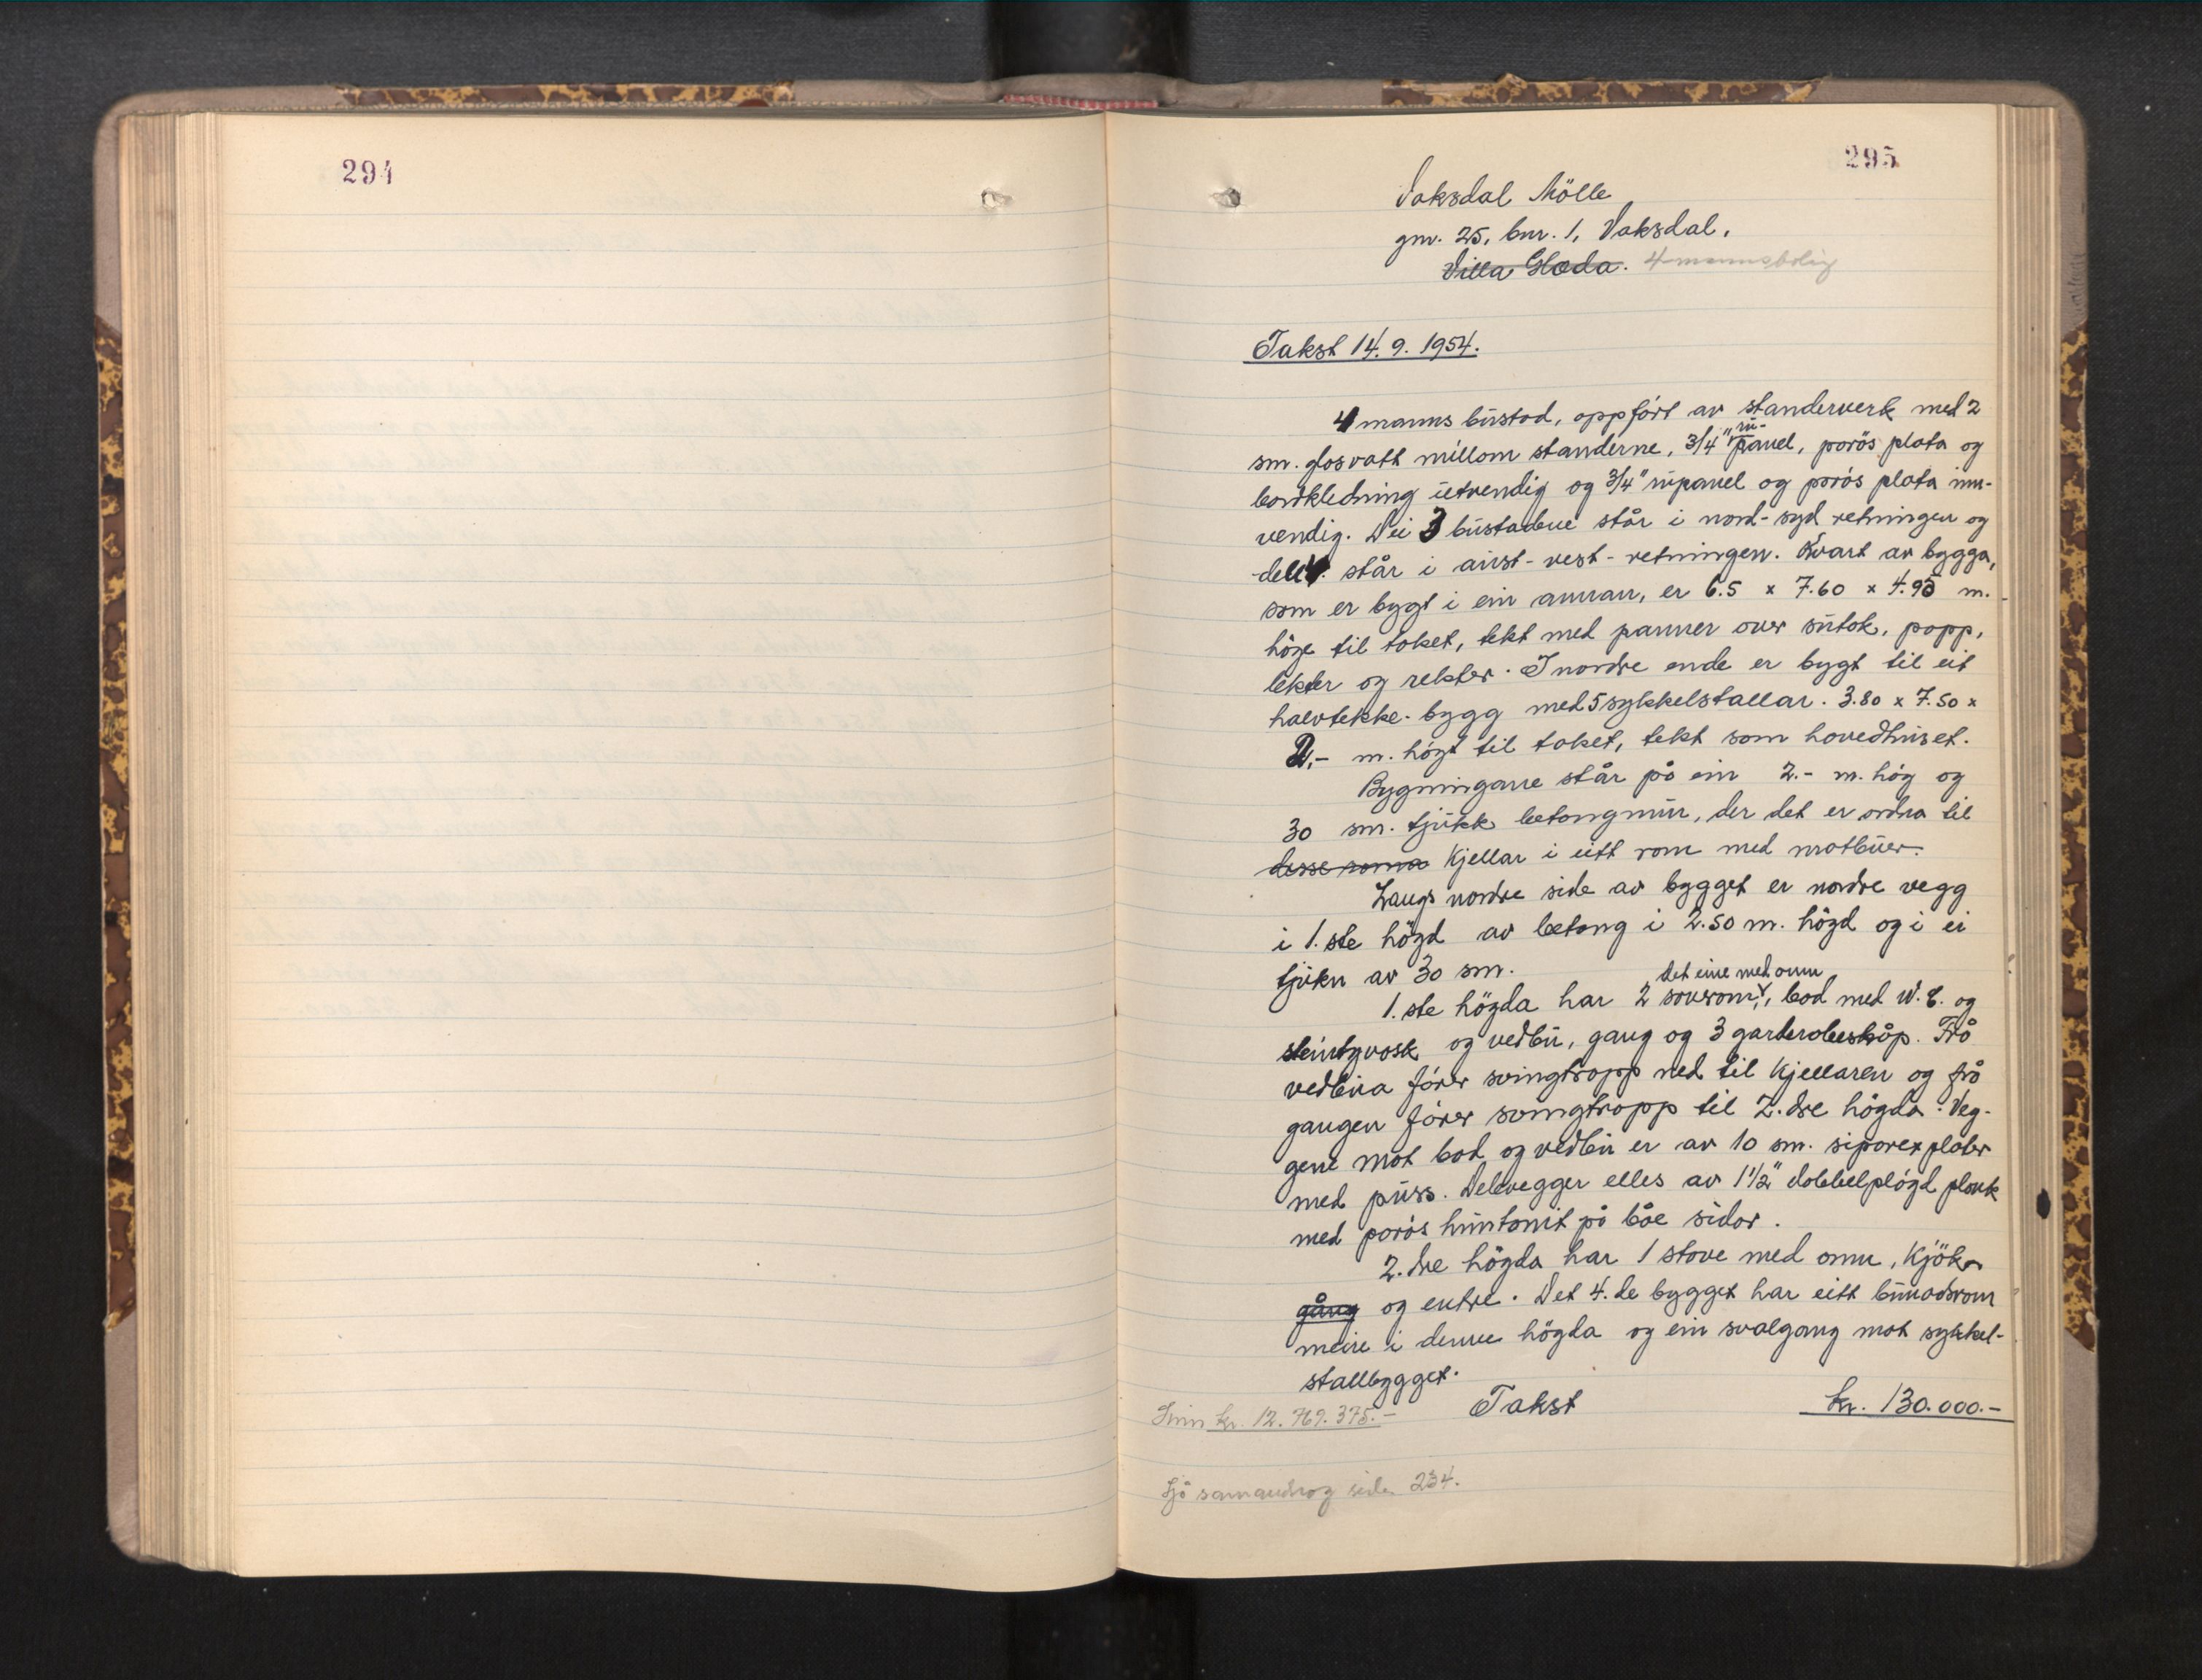 294
295
Vaksdal Mölle
gnr. 25, bnr. 1, Vaksdal.
Villa Glæda. 4-mannsbolig
Takst 14.9. 1954.
4 manns bustad, oppfört av standerverk med 2
sm. glasvatt millom standerne, 3/4" ru-panel, porös plata og
bordkledning utvendig og 3/4" rupanel og porös plata inn-
vendig. Dei 3 bustadene står i nord-syd retningen og
den 4. står i aust-vest-retningen. Kvart av bygga,
som er bygt i ein annan, er 6.5 x 7.60 x 4.95 m.
höge til taket, tekt med panner over sutak, papp,
lekter og rekter. I nordre ende er bygt til eit
halvtekke-bygg med 5 sykkelstallar. 3.80 x 7.50 x
2,- m. högt til taket, tekt som hovedhuset.
Bygningane står på ein 2.- m. hög og
30 sm. tjukk betongmur, der det er ordna til
desse roma kjellar i eitt rom med matbuer.
Langs nordre side av bygget er nordre vegg
i 1.ste högd av betong i 2.50 m. högd og i ei
tjukn av 30 sm.
det eine med omn
1.ste högda har 2 soverom, bod med W.C. og
steintyvask og vedbu, gang og 3 garderobeskåp. Frå
vedbua förer svingtrapp ned til kjellaren og frå
gangen förer svingtrapp til 2.dre högda. Veg-
gene mot bod og vedbu er av 10 sm. siporex plater
med puss. Delevegger elles av 1 1/2" dobbelplögd plank
med porös huntonit på båe sidor.
2.dre högda har 1 stove med omn, kjök
gang og entre. Det 4.de bygget har eitt bunadsrom
meire i denne högda og ein svalgang mot sykkel-
stallbygget.
Takst kr. 130.000.-
Sum kr. 12.769.375.-
Sjå samandrag side 234.